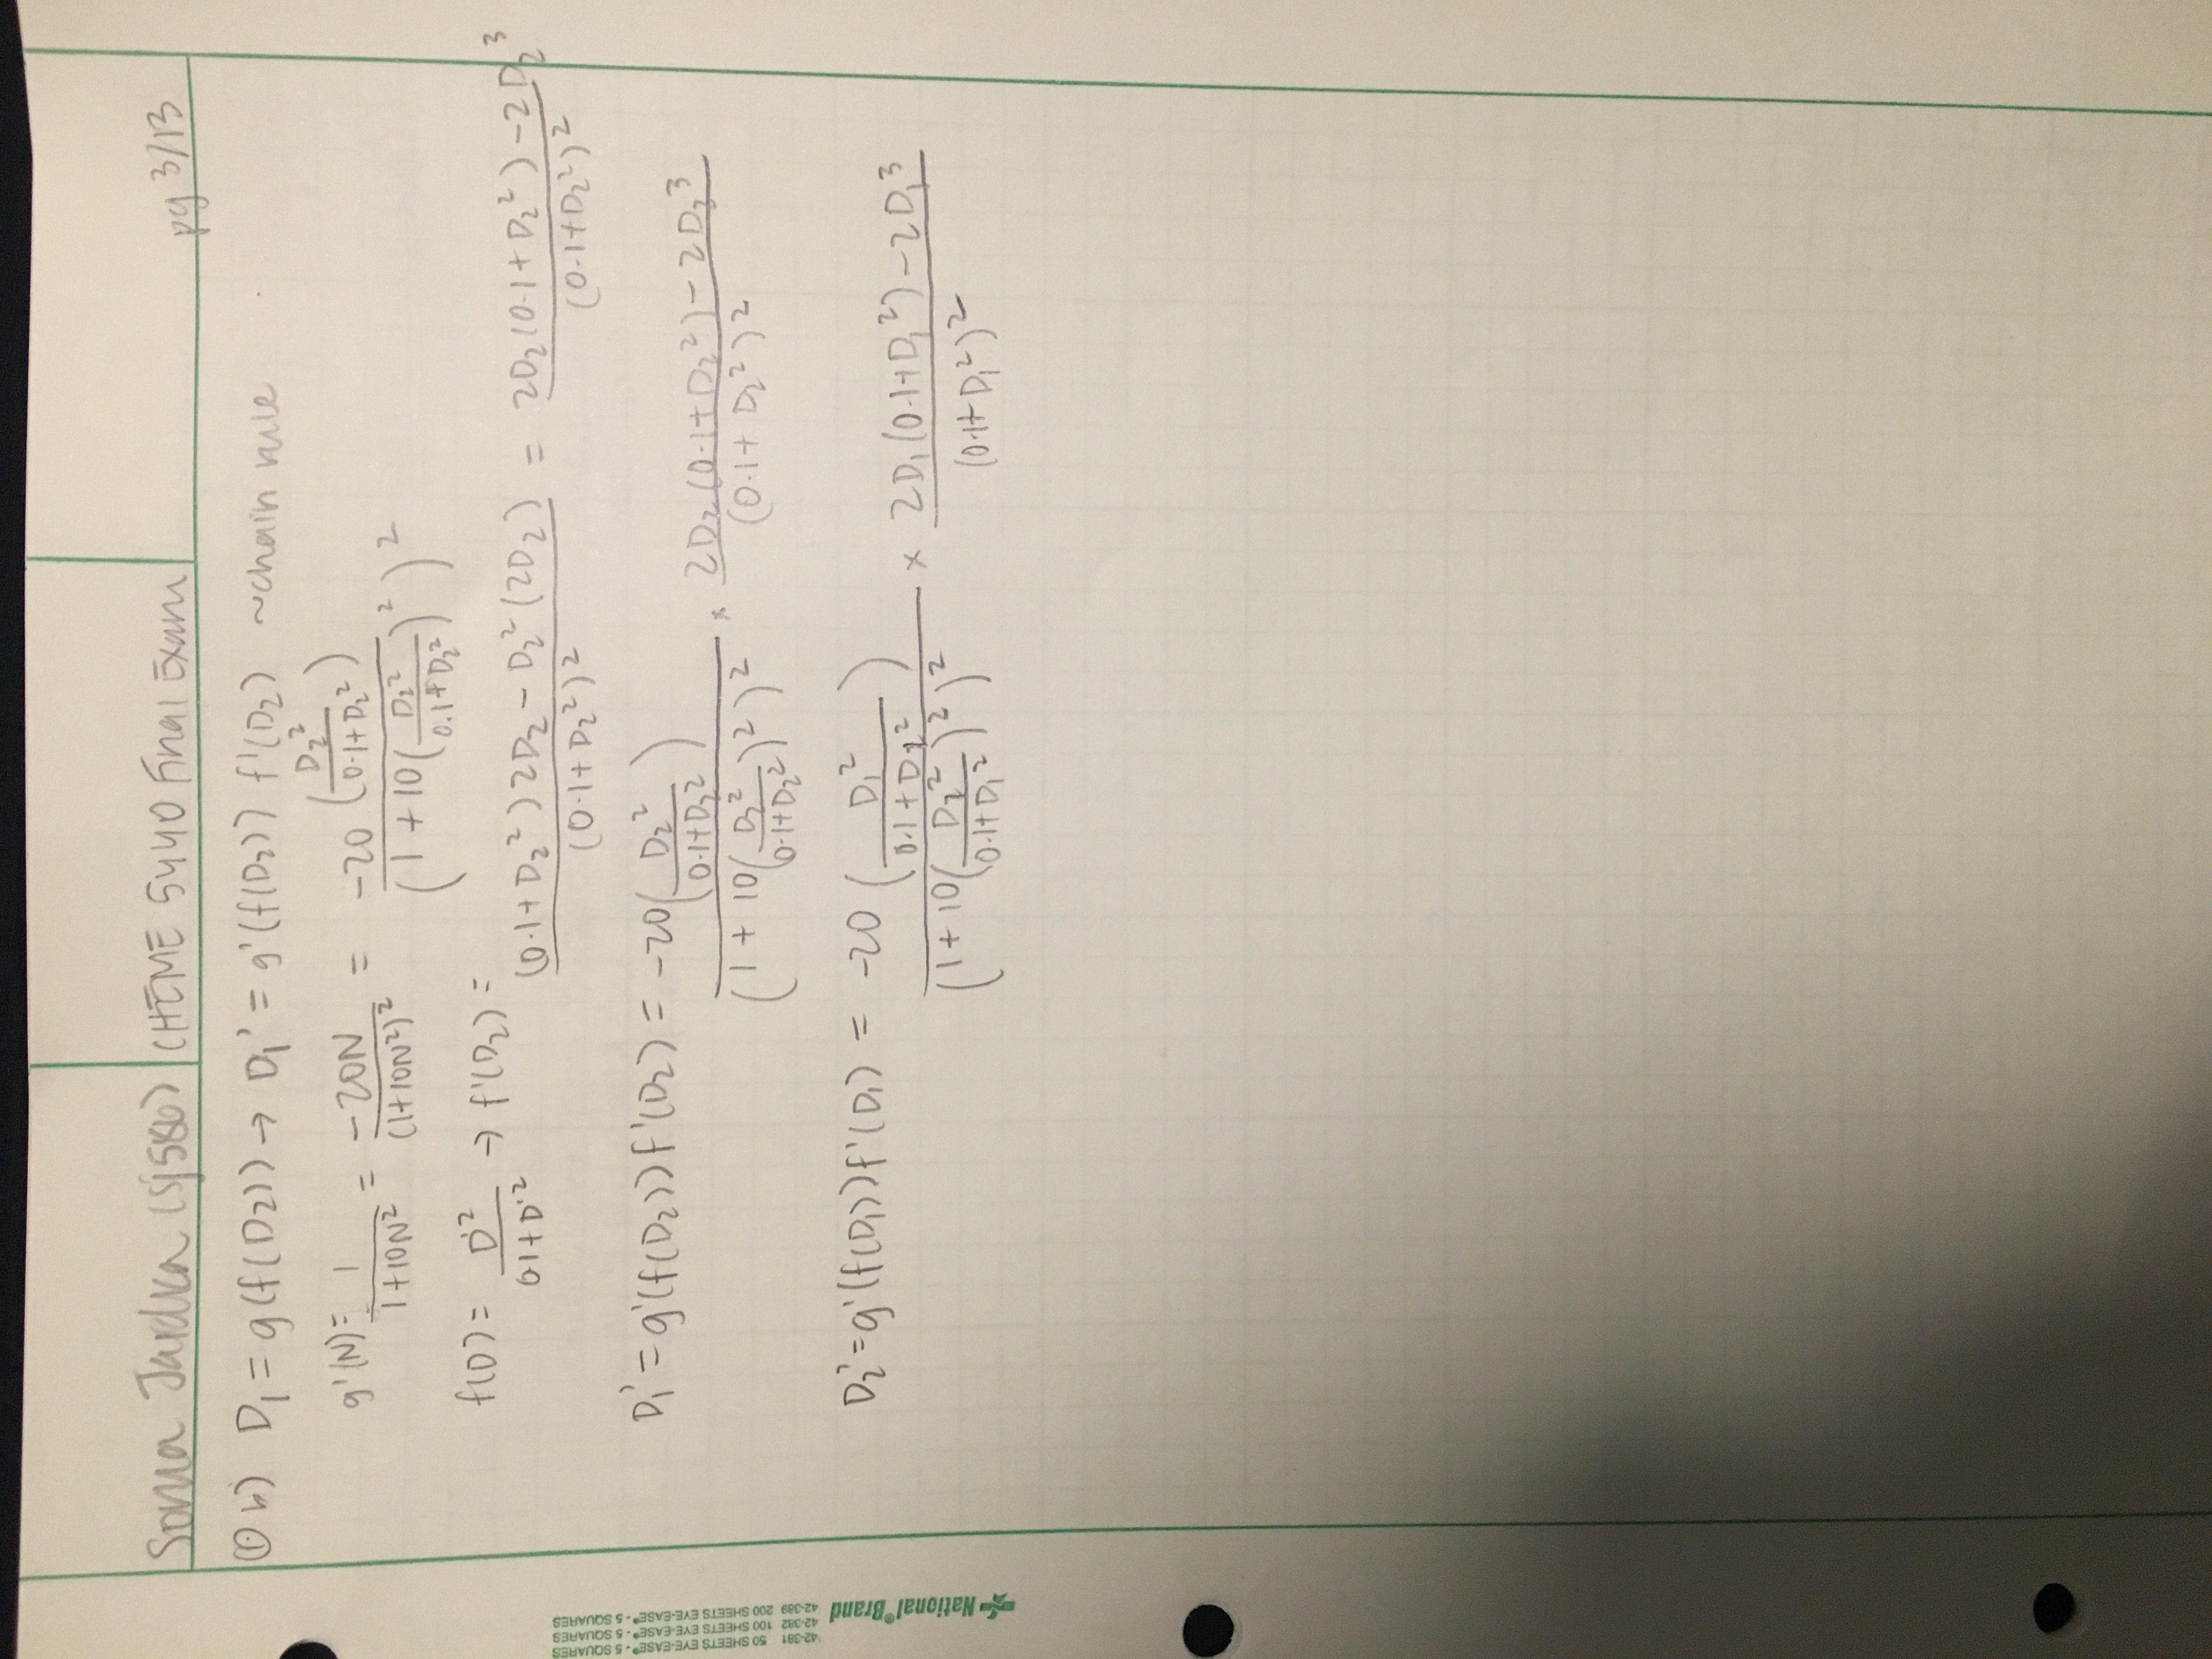 Soma Jardka (sj586) CHEME 5440 Final Exam pg 3/13
① b) D₁ = g(f(D₂)) → D₁' = g'(f(D₂)) f'(D₂) ~chain rule
g'(N) = 1/(1+10N²) = -20N/(1+10N²)² = -20(D₂²/(0.1+D₂²))/(1+10(D₂²/(0.1+D₂²))²)²
f(D) = D'²/(0.1+D'²) → f'(D₂) = ((0.1+D₂²)2D₂ - D₂²(2D₂))/(0.1+D₂²)² = (2D₂(0.1+D₂²) - 2D₂³)/(0.1+D₂²)²
D₁' = g'(f(D₂))f'(D₂) = -20(D₂²/(0.1+D₂²))/(1+10(D₂²/(0.1+D₂²))²)² × (2D₂(0.1+D₂²) - 2D₂³)/(0.1+D₂²)²
D₂' = g'(f(D₁))f'(D₁) = -20(D₁²/(0.1+D₁²))/(1+10(D₂²/(0.1+D₁²))²)² × (2D₁(0.1+D₁²) - 2D₁³)/(0.1+D₁²)²
42-381 50 SHEETS EYE-EASE® - 5 SQUARES
42-382 100 SHEETS EYE-EASE® - 5 SQUARES
42-389 200 SHEETS EYE-EASE® - 5 SQUARES
National®Brand